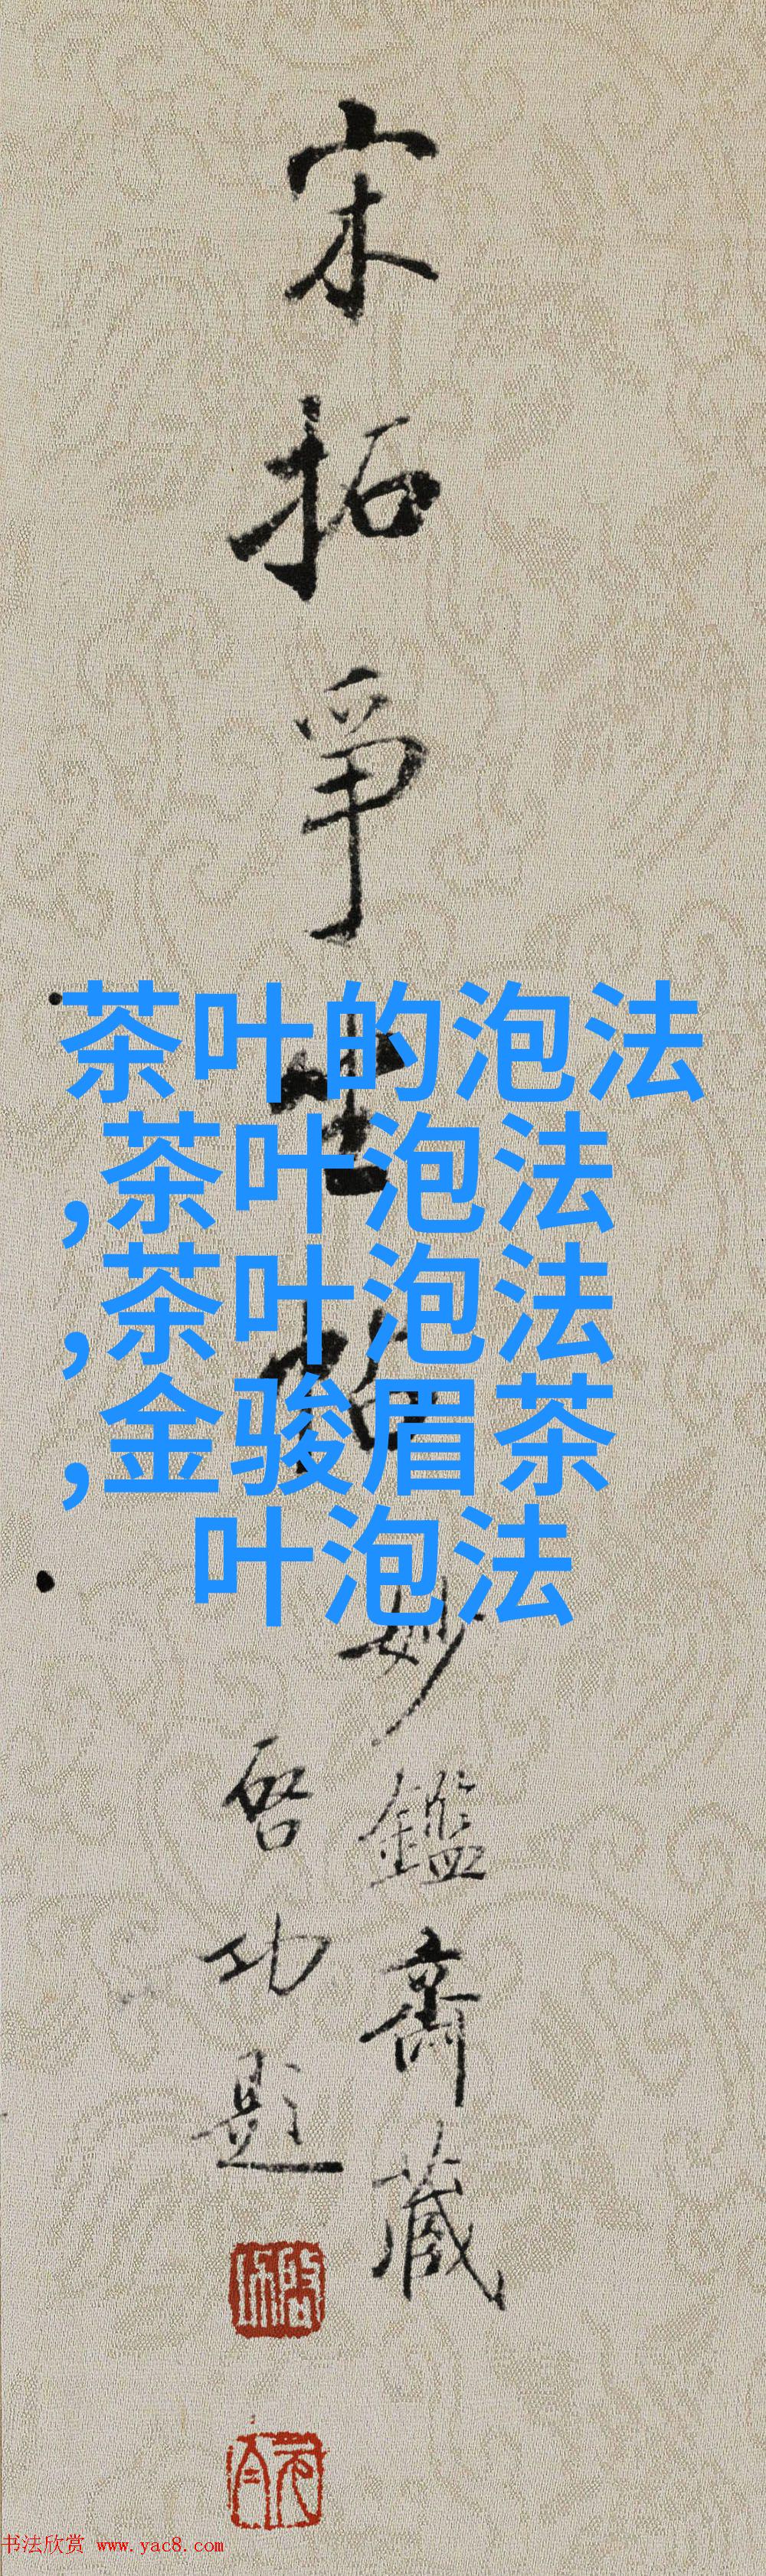 宋拓争坐帖
妙鑑斋藏
启功题
茶叶的泡法
,茶叶泡法
,茶叶泡法
,金骏眉茶
叶泡法
书法欣赏 www.yac8.com